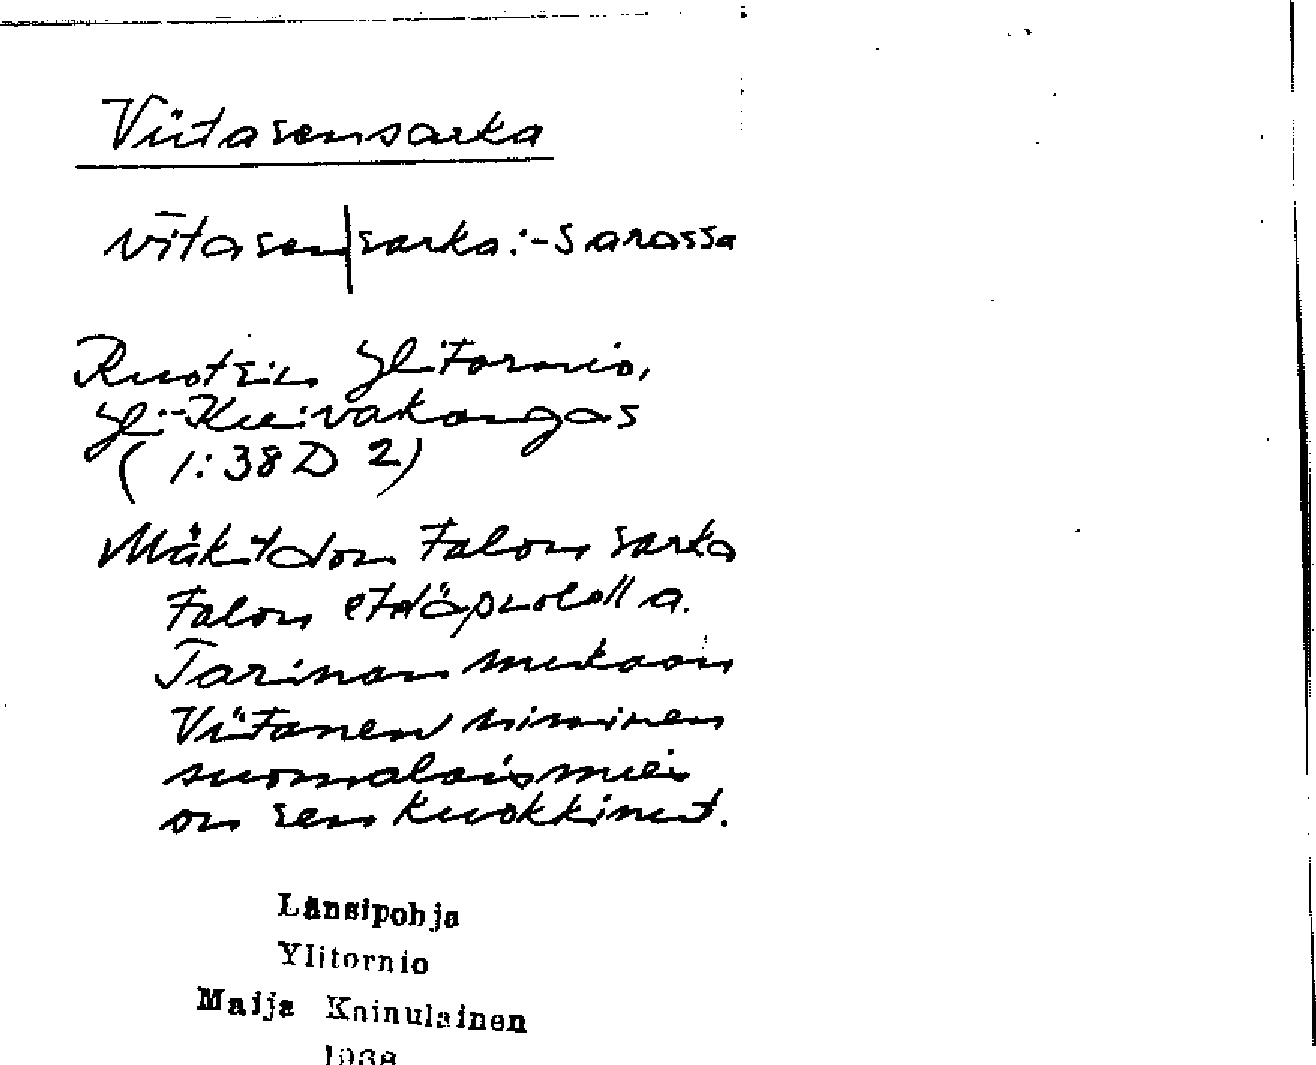 Viitasensarka
vītasen|sarka:-sarassa
Ruotsin Ylitornio,
Yli-Kuivakangas
(1:38 D 2)
Mäkitalon talon sarka
talon eteläpuolella.
Tarinan mukaan
Viitanen niminen
suomalaismies
on sen kuokkinut.
Länsipohja
Ylitornio
Maija Kainulainen